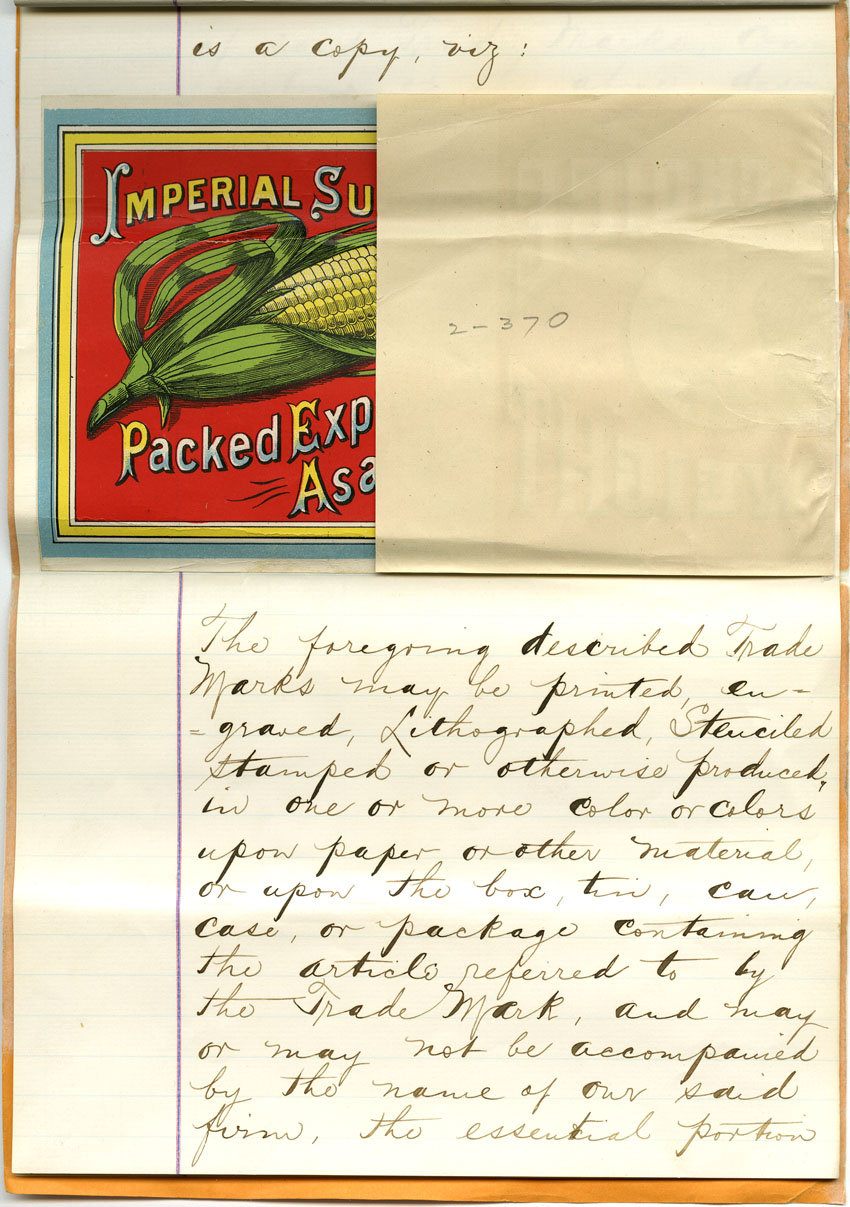 is a copy, viz:
IMPERIAL SU
2-370
Packed Exp
Asa
The foregoing described Trade
Marks may be printed, en=
=graved, Lithographed, Stenciled
stamped or otherwise produced,
in one or more color or colors
upon paper or other material,
or upon the box, tin, can,
case, or package containing
the article referred to by
the Trade Mark, and may
or may not be accompanied
by the name of our said
firm, the essential portion